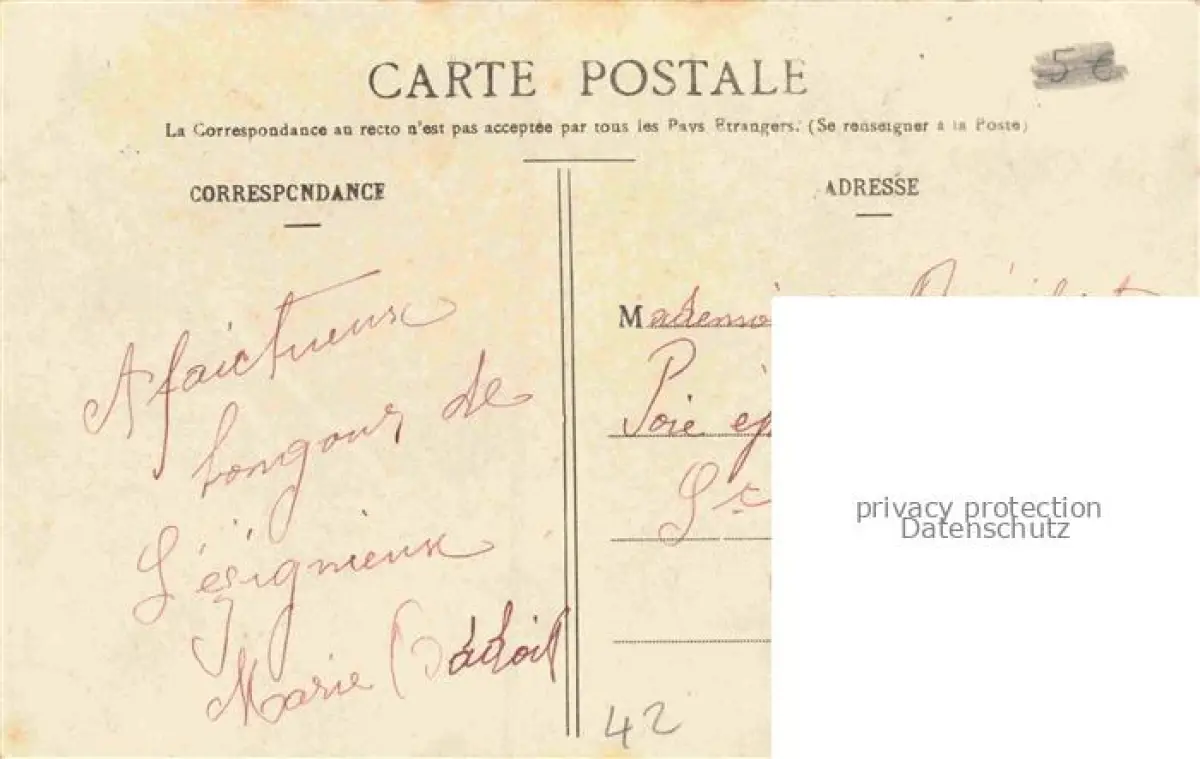 CARTE POSTALE
5 €
La Correspondance au recto n'est pas acceptée par tous les Pays Etrangers. (Se renseigner à la Poste)
CORRESPONDANCE
ADRESSE
Afaictueux
bongour de
Lézignieux
Marie
Mademoi
St
42
privacy protection
Datenschutz